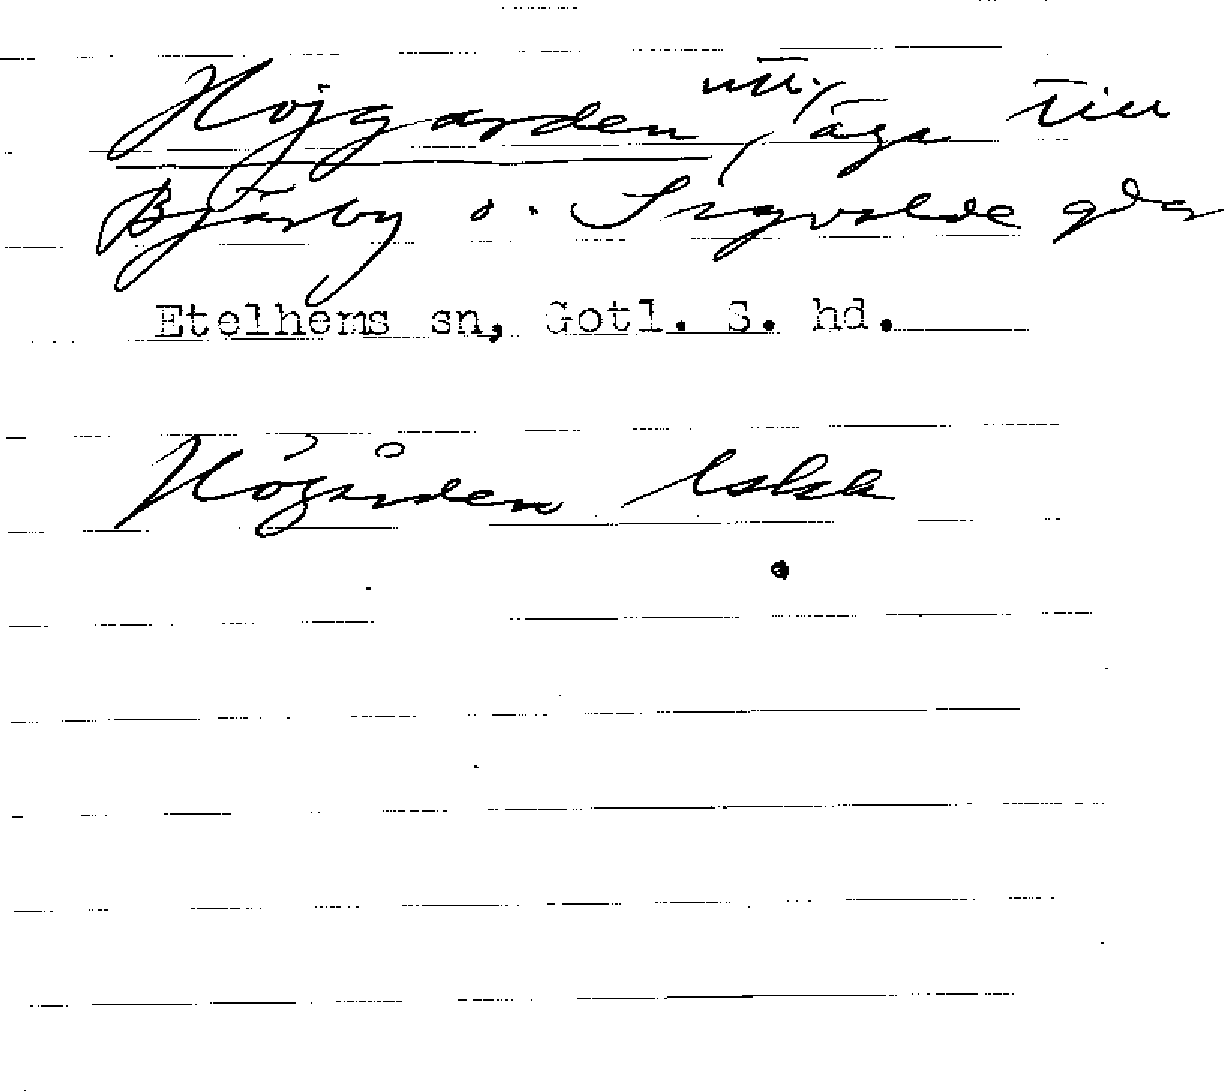 Höjgarden, utj. äga till
Bjärby o. Sigvalde gdr
Etelhems sn, Gotl. S. hd.
Högården Eskk